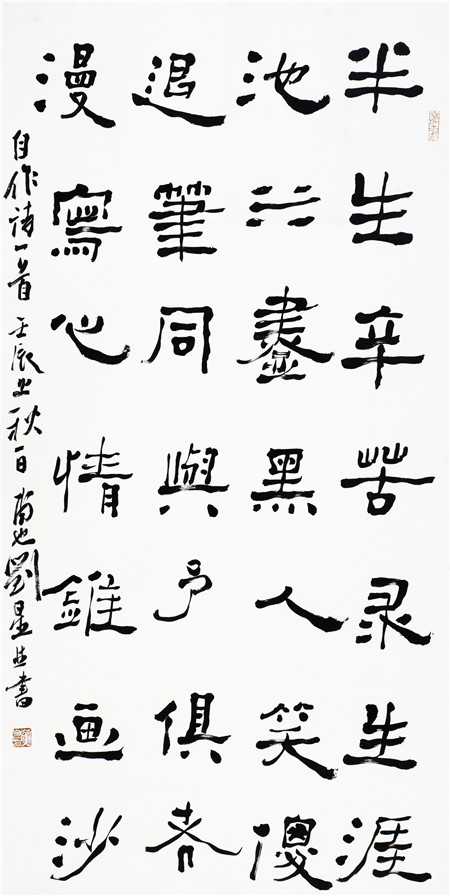 半生辛苦生涯
池水盡黑人笑傻
退筆同與予俱老
漫寫心情錐画沙
自作诗一首 壬辰之秋一日 劉星書